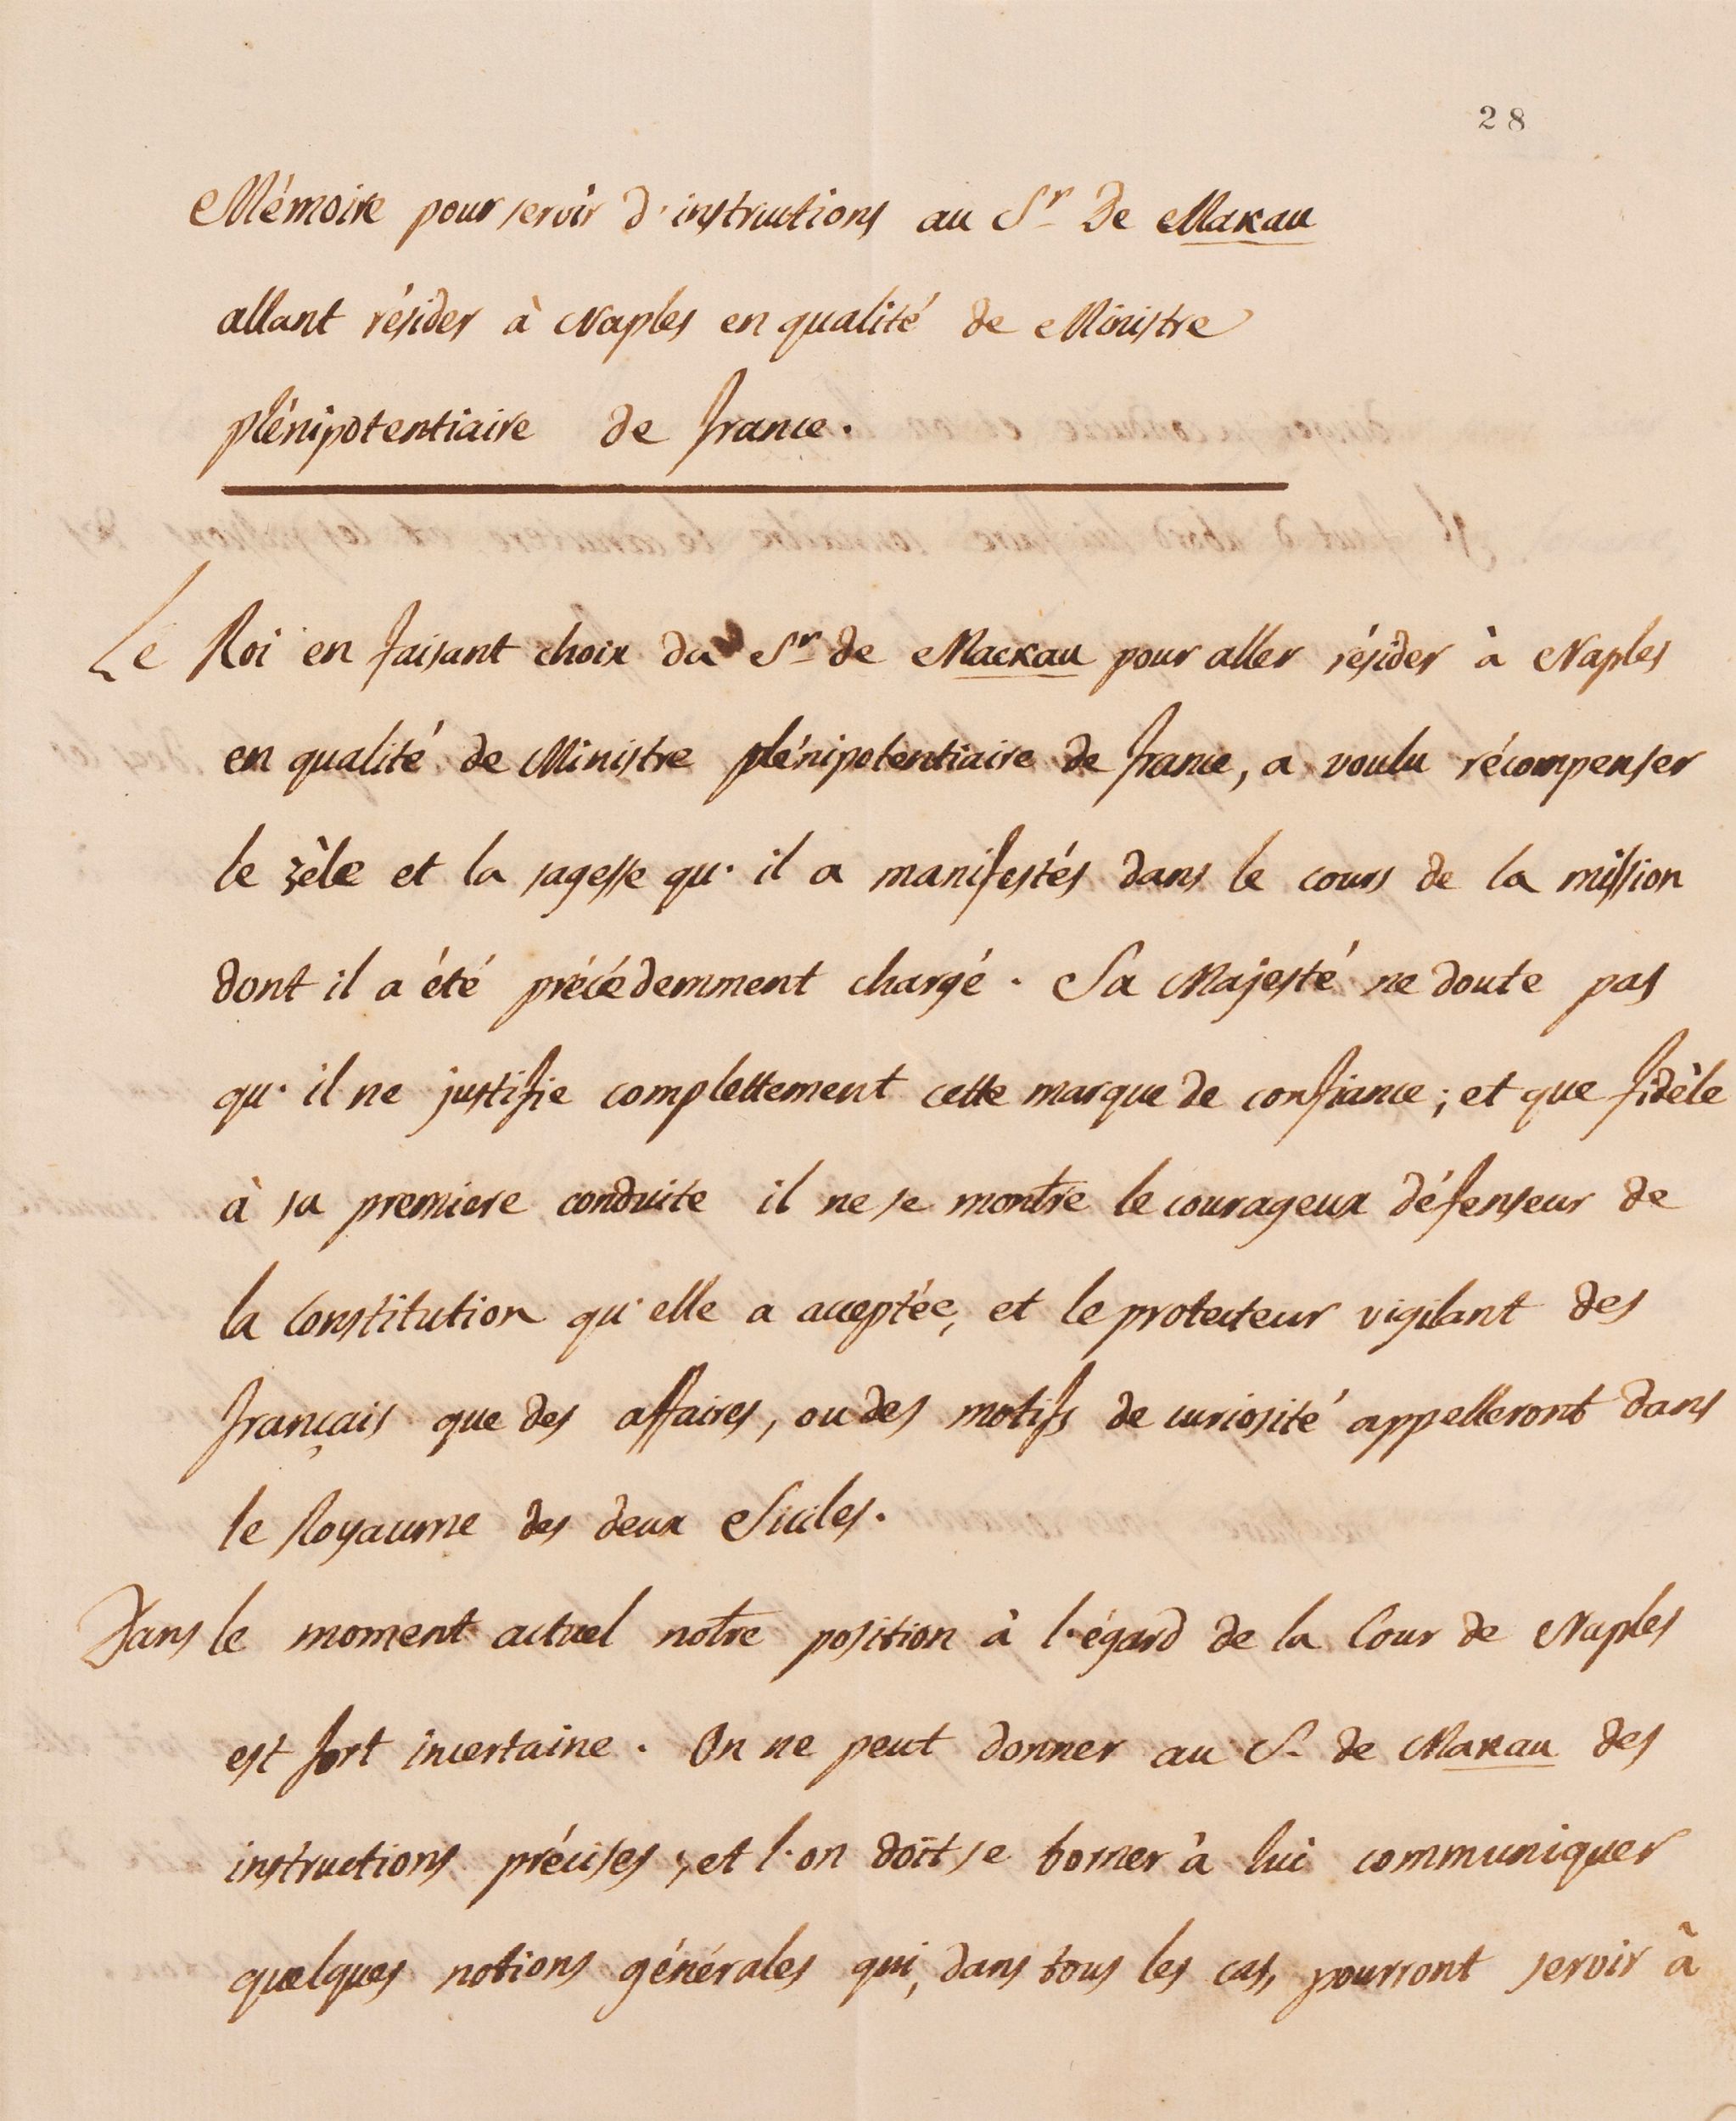 28
Mémoire pour servir d'instructions au Sr De Makau
allant résider à Naples en qualité de Ministre
plénipotentiaire de france.
Le Roi en faisant choix du Sr de Mackau pour aller résider à Naples
en qualité de Ministre plénipotentiaire de france, a voulu récompenser
le zèle et la sagesse qu'il a manifestés dans le cours de la mission
dont il a été précédemment chargé. Sa Majesté ne doute pas
qu'il ne justifie complettement cette marque de confiance; et que fidèle
à sa premiere conduite il ne se montre le courageux défenseur de
la Constitution qu'elle a acceptée, et le protecteur vigilant des
français que des affaires, ou des motifs de curiosité appelleront dans
le Royaume des deux Siciles.
Dans le moment actuel notre position à l'égard de la Cour de Naples
est fort incertaine. On ne peut donner au S. de Makau des
instructions précises; et l'on doit se borner à lui communiquer
quelques notions générales qui, dans tous les cas, pourront servir à